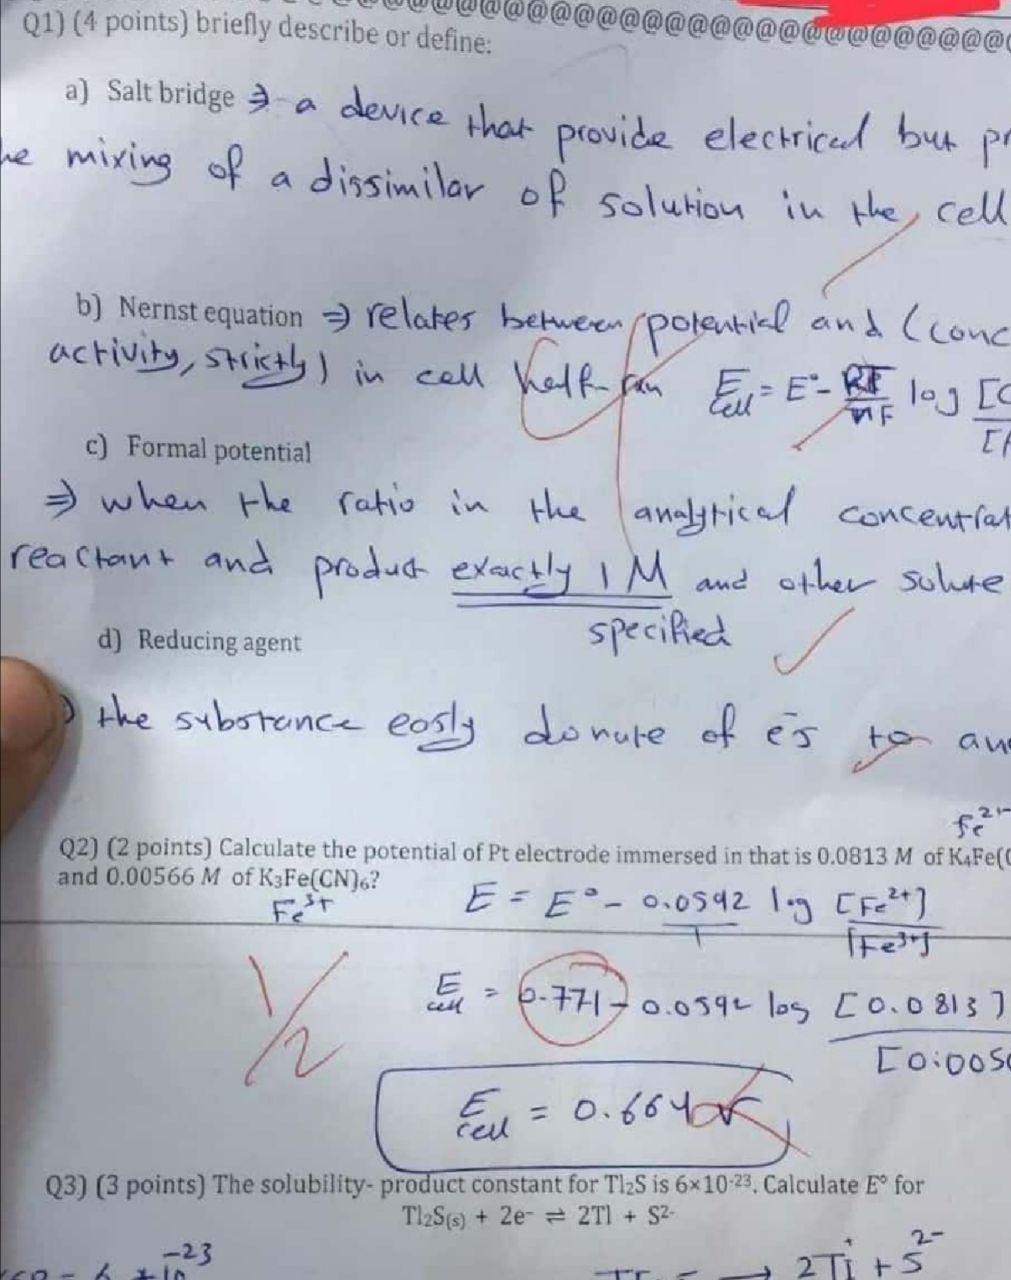 @@@@@@@@@@@@@@@@@@@@@@@@@@
Q1) (4 points) briefly describe or define:
a) Salt bridge ⇒ a device that provide electrical but pr
he mixing of a dissimilar of solution in the cell
b) Nernst equation ⇒ relates between potential and (conc
activity, strictly) in cell half-
E cell = E° - RT/nF log [C
c) Formal potential
⇒ when the ratio in the analytical concentrat
reactant and product exactly 1 M and other solute
specified
d) Reducing agent
the substance easly donate of e⁻s to an
Fe²⁺
Q2) (2 points) Calculate the potential of Pt electrode immersed in that is 0.0813 M of K₄Fe(C
and 0.00566 M of K₃Fe(CN)₆?
Fe³⁺
E = E° - 0.0592/1 log [Fe²⁺]/[Fe³⁺]
1/2
E cell = 0.771 - 0.0592 log [0.0813]/[0.005
E cell = 0.664 v
Q3) (3 points) The solubility- product constant for Tl₂S is 6×10⁻²³. Calculate E° for
Tl₂S(s) + 2e⁻ ⇌ 2Tl + S²⁻
= 6 × 10⁻²³
→ 2Tl + S²⁻